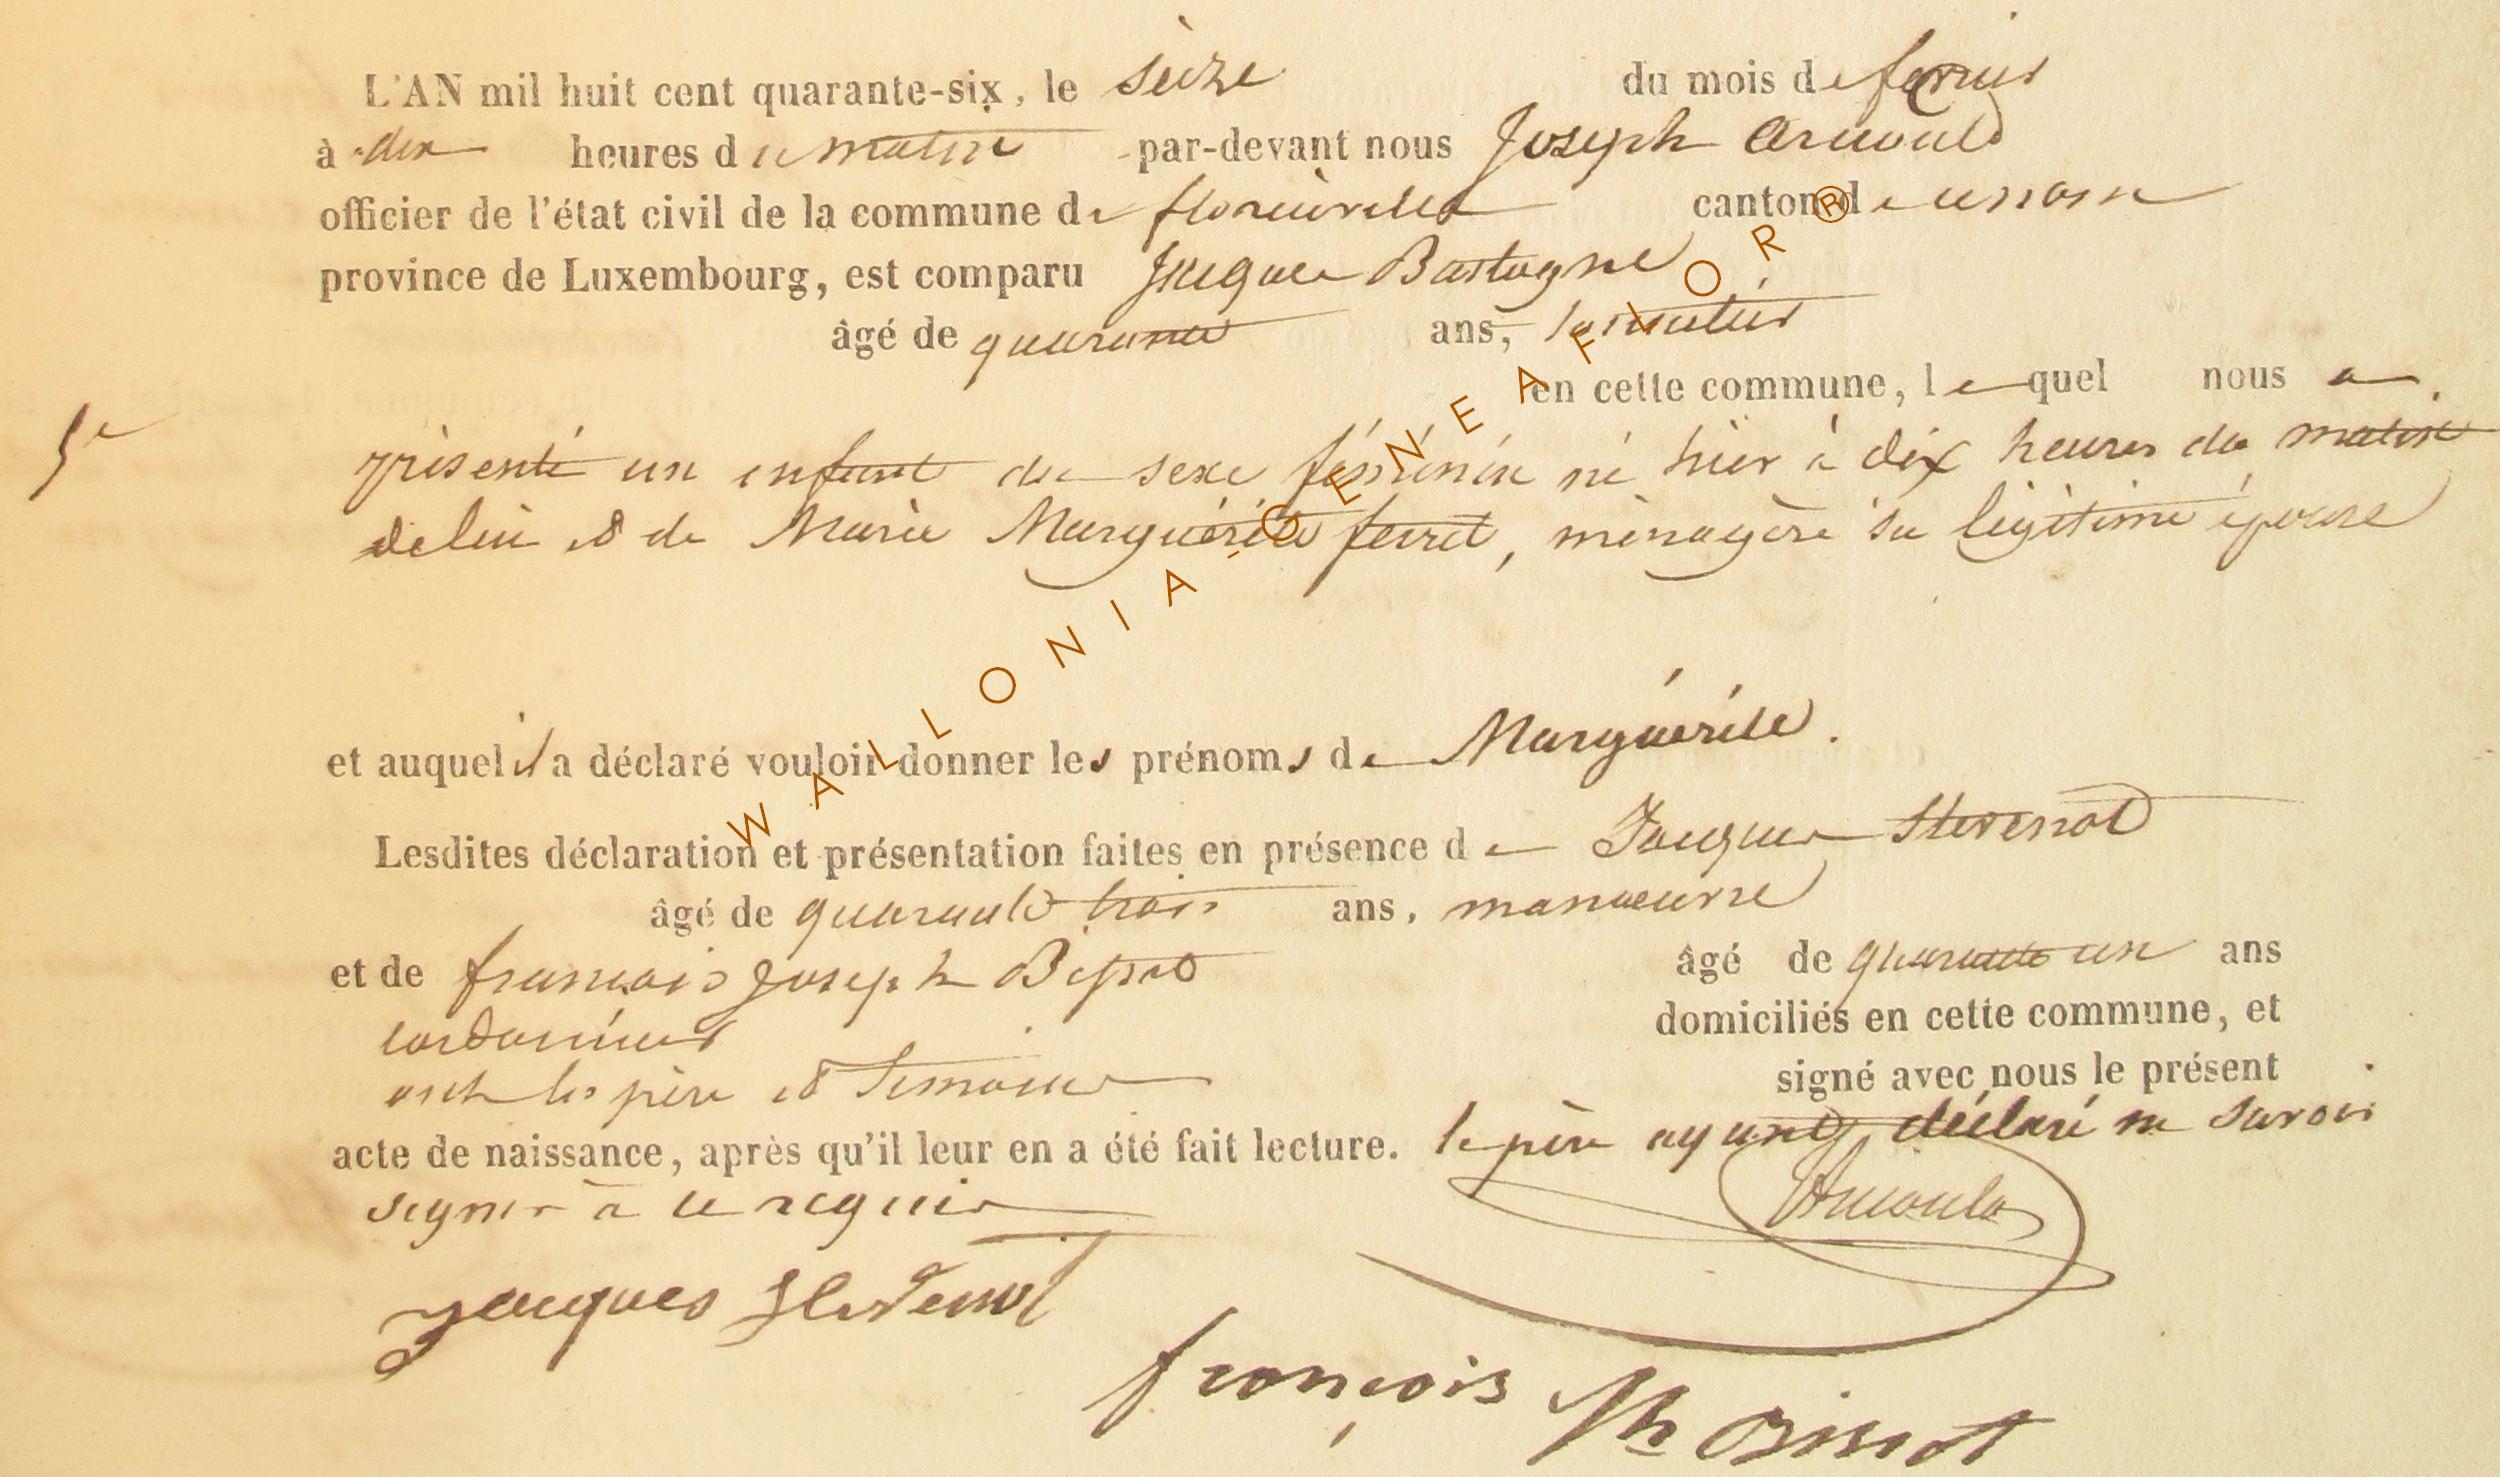 L'AN mil huit cent quarante-six, le seize du mois de fevrier
à dix heures du matin par-devant nous Joseph Arnould
officier de l'état civil de la commune de florenville canton de
province de Luxembourg, est comparu Jacques Bastogne
âgé de quarante ans,
en cette commune, lequel nous a
5e
présenté un enfant du sexe féminin né hier à dix heures du matin
de lui et de Marie Marguérite ferret, ménagère sa légitime épouse
et auquel il a déclaré vouloir donner les prénoms de Marguérite.
Lesdites déclaration et présentation faites en présence de Jacques Stevenot
âgé de quarante trois ans, manoeuvre
et de francois Joseph âgé de quarante un ans
cordonnier domiciliés en cette commune, et
ont les père et temoins signé avec nous le présent
acte de naissance, après qu'il leur en a été fait lecture. le père ayant déclaré ne savoir
signer à ce requis
Arnould
jacques
françois
WALLONIA-GENEAFLOR®